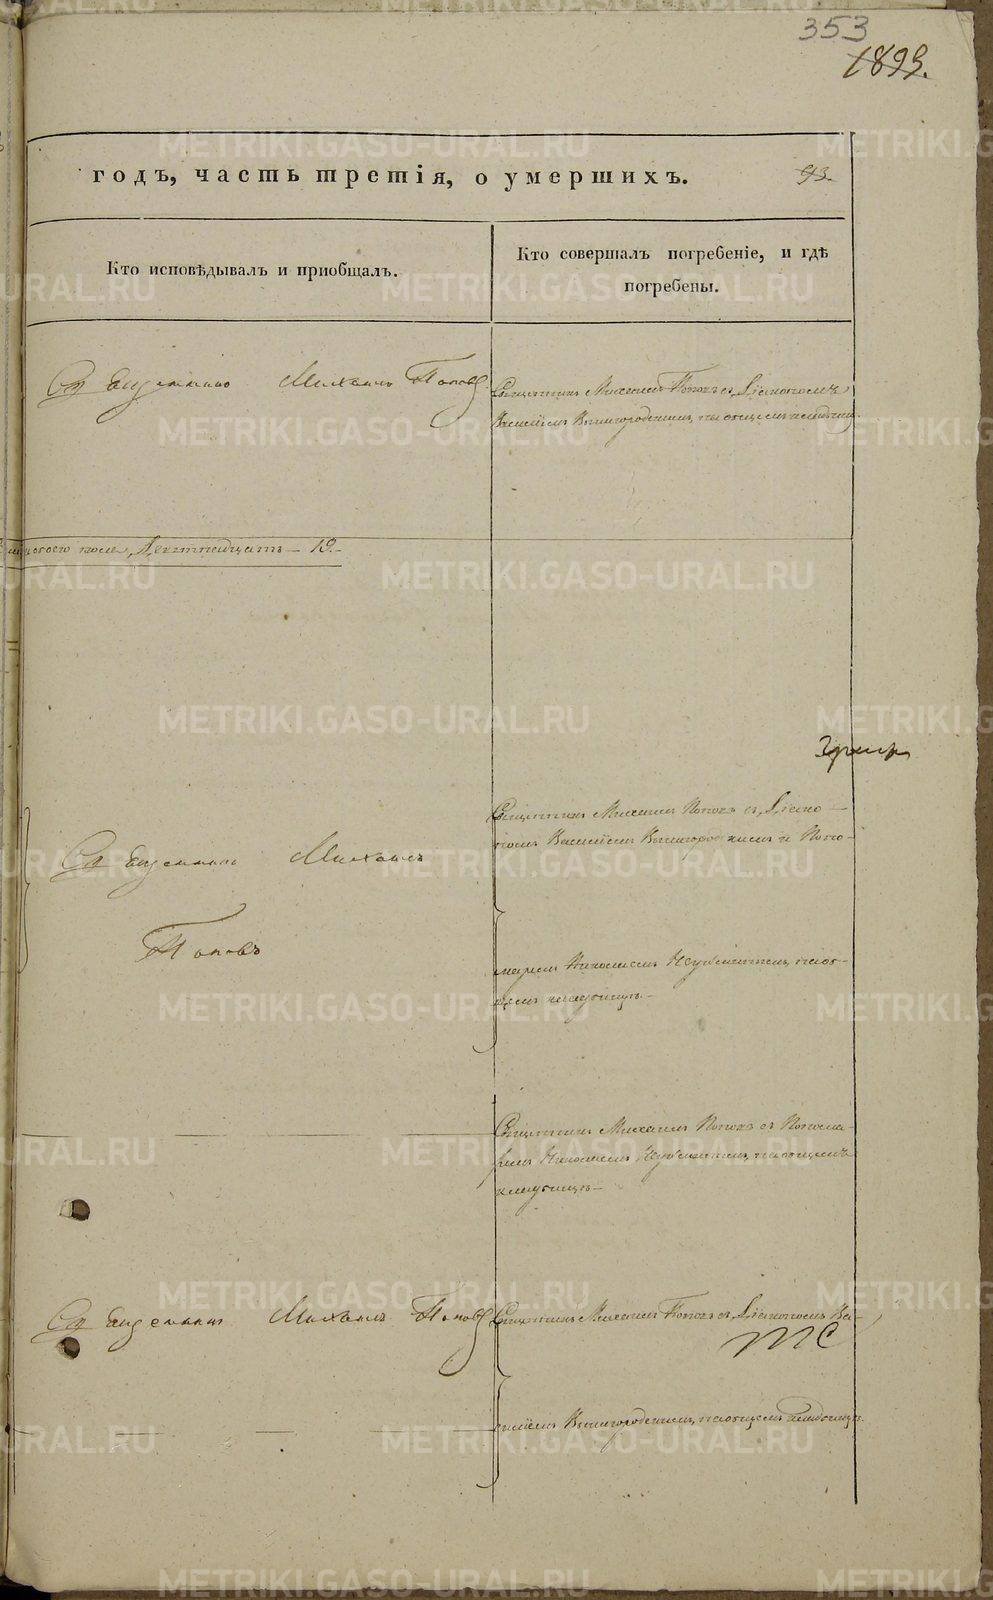 353
1893.
годъ, часть третія, о умершихъ.
93.
Кто исповѣдывалъ и приобщалъ.
Кто совершалъ погребеніе, и гдѣ
погребены.
Священникъ Михаилъ Поповъ
Священникъ Михаилъ Поповъ съ Діакономъ
Василіемъ Вышгородскимъ, на общемъ кладбищѣ
Девятнадцать — 19 —
Священникъ Михаилъ Поповъ съ Діако-
номъ Василіемъ Вышгородскимъ и Поно-
Священникъ Михаилъ
Поповъ
маремъ Николаемъ на об-
щемъ кладбищѣ. —
Священникъ Михаилъ Поповъ съ Понома-
ремъ Николаемъ на общемъ
кладбищѣ —
Священникъ Михаилъ Поповъ
Священникъ Михаилъ Поповъ съ Діакономъ Ва-
силіемъ Вышгородскимъ, на общемъ кладбищѣ.
METRIKI.GASO-URAL.RU